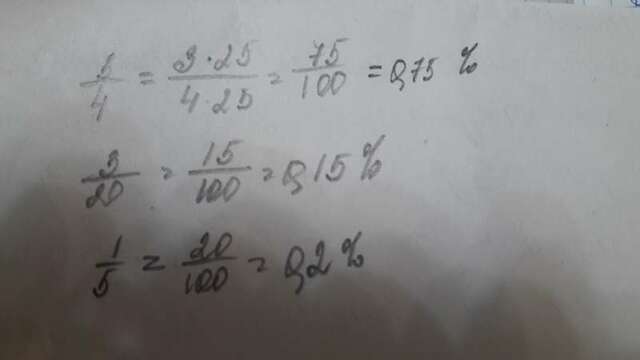 3/4 = 3·25/4·25 = 75/100 = 0,75 %
3/20 = 15/100 = 0,15 %
1/5 = 20/100 = 0,2 %